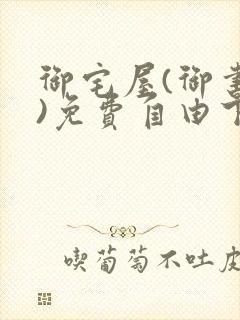 御宅屋(御書
)免費自由下
喫葡萄不吐皮